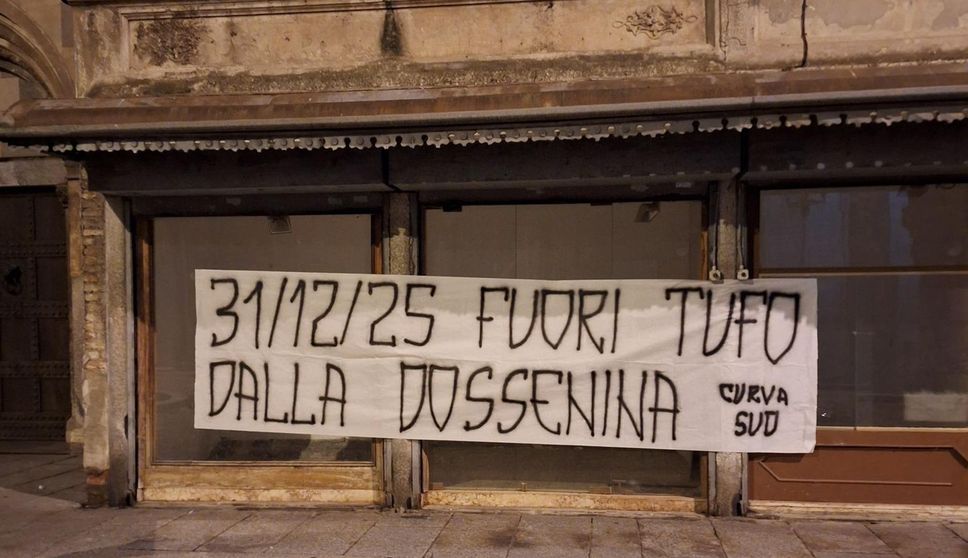 31/12/25 FUORI TUFO
DALLA DOSSENINA
CURVA
SUD